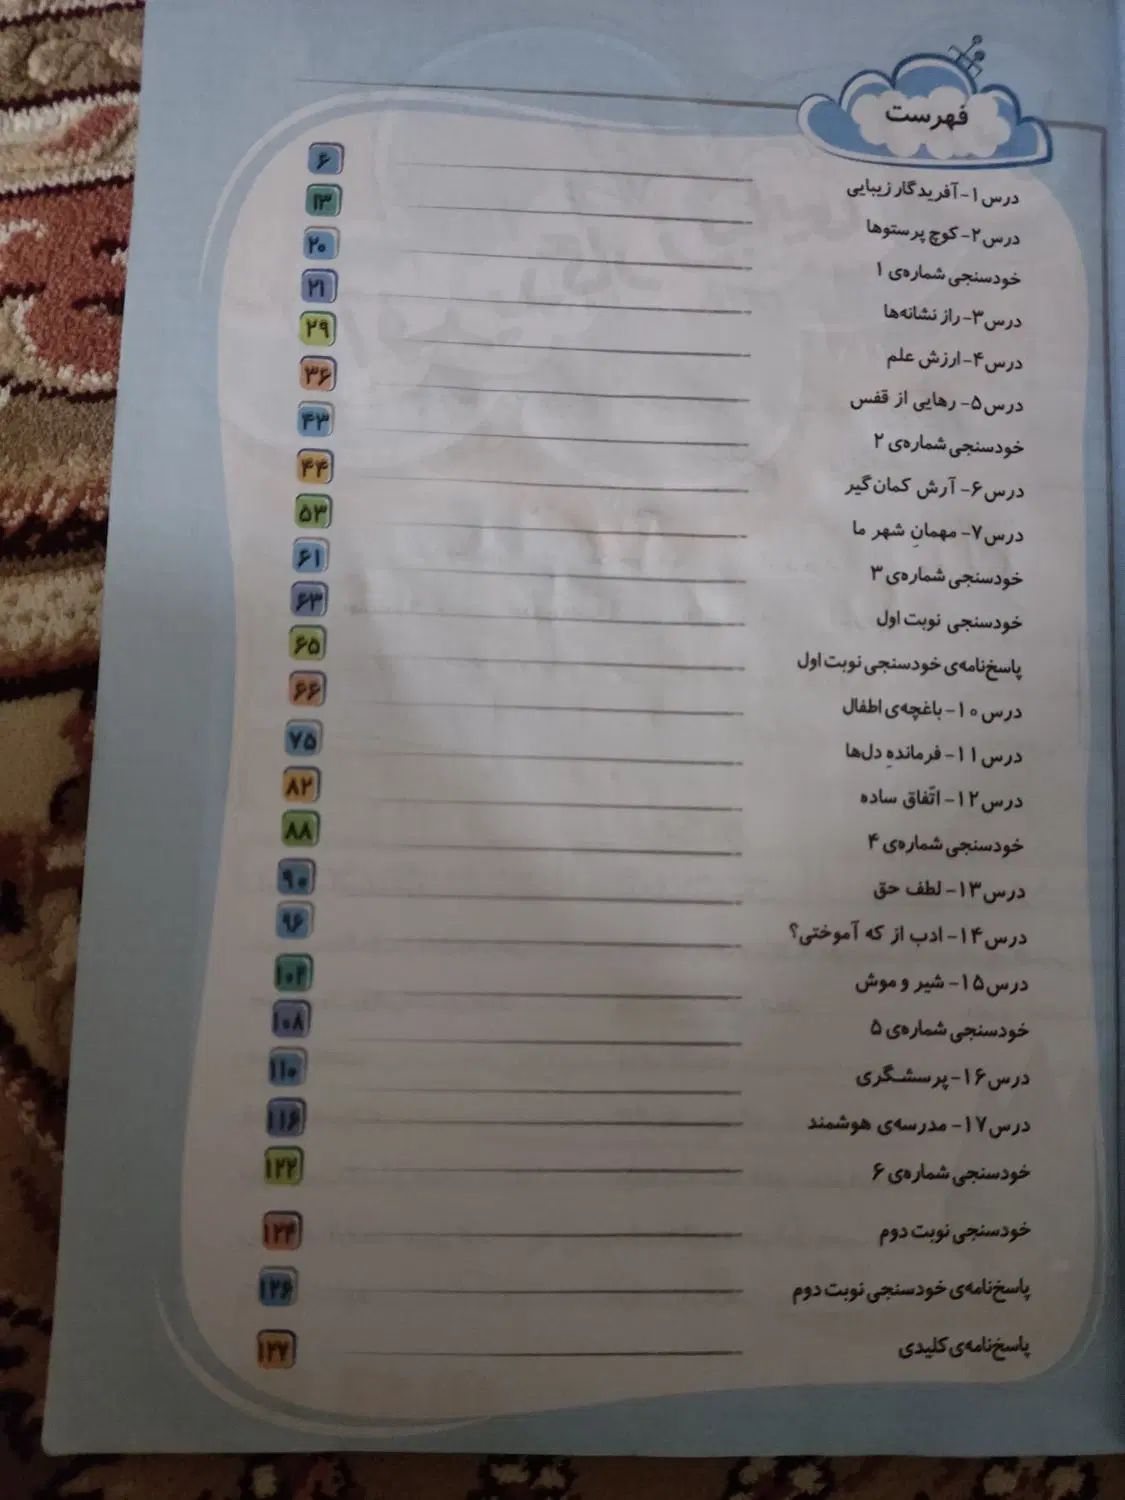 فهرست
درس۱- آفریدگار زیبایی ۶
درس۲- کوچ پرستوها ۱۳
خودسنجی شماره‌ی ۱ ۲۰
درس۳- راز نشانه‌ها ۲۱
درس۴- ارزش علم ۲۹
درس۵- رهایی از قفس ۳۶
خودسنجی شماره‌ی ۲ ۴۳
درس۶- آرش کمان‌گیر ۴۴
درس۷- مهمانِ شهر ما ۵۳
خودسنجی شماره‌ی ۳ ۶۱
خودسنجی نوبت اول ۶۳
پاسخ‌نامه‌ی خودسنجی نوبت اول ۶۵
درس۱۰- باغچه‌ی اطفال ۶۶
درس۱۱- فرماندهِ دل‌ها ۷۵
درس۱۲- اتّفاق ساده ۸۲
خودسنجی شماره‌ی ۴ ۸۸
درس۱۳- لطف حق ۹۰
درس۱۴- ادب از که آموختی؟ ۹۶
درس۱۵- شیر و موش ۱۰۲
خودسنجی شماره‌ی ۵ ۱۰۸
درس۱۶- پرسشگری ۱۱۰
درس۱۷- مدرسه‌ی هوشمند ۱۱۶
خودسنجی شماره‌ی ۶ ۱۲۲
خودسنجی نوبت دوم ۱۲۴
پاسخ‌نامه‌ی خودسنجی نوبت دوم ۱۲۶
پاسخ‌نامه‌ی کلیدی ۱۲۷